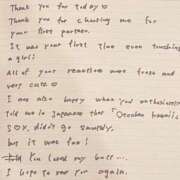 Thank you for today♡
Thank you for chosing me for
your first partner.
It was your first time even touching
a girl!
All of your reactions were fresh and
very cute♡
I was also happy when you enthusiastically
told me in Japanese that "
S○X, didn't go smoothly,
but it was fun!
You loved my butt ....
I hope to see you again.